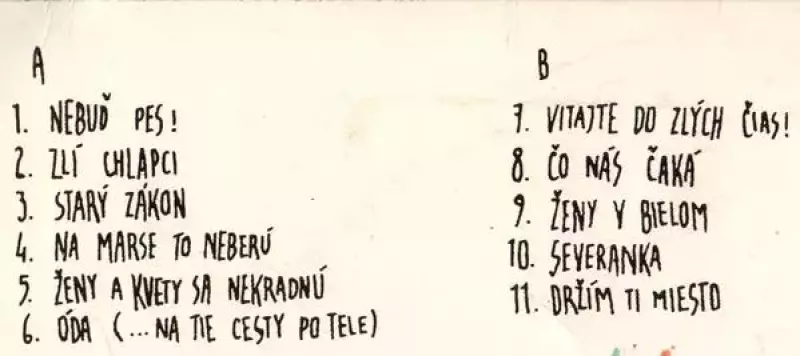 A
1. NEBUĎ PES!
2. ZLÍ CHLAPCI
3. STARÝ ZÁKON
4. NA MARSE TO NEBERÚ
5. ŽENY A KVETY SA NEKRADNÚ
6. ÓDA (...NA TIE CESTY PO TELE)
B
7. VITAJTE DO ZLÝCH ČIAS!
8. ČO NÁS ČAKÁ
9. ŽENY V BIELOM
10. SEVERANKA
11. DRŽÍM TI MIESTO